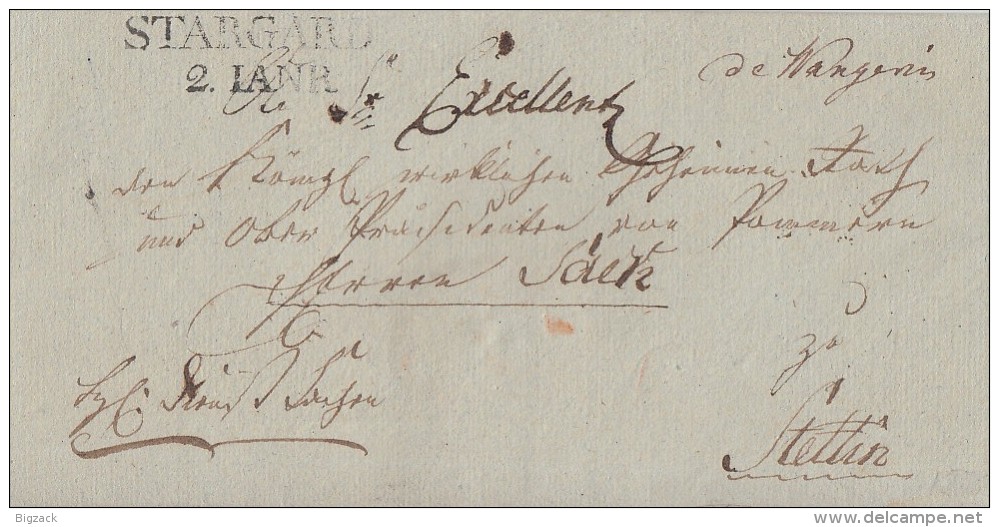 STARGARD
2. IANR.
de Wangerin
Sr Excellentz
den Königl wirklichen Geheimen Rath
und Ober Präsidenten von Pommern
Herren Sack
zu
Stettin
Sachen
Bigzack
delcampe.net